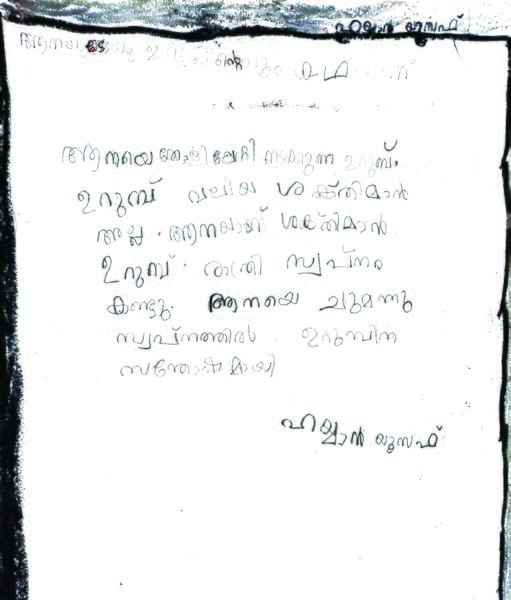 ഹയ്യാൻ യൂസഫ്
ആനയുടേയും ഉറുമ്പിന്റെയും കഥയാണ്
ആനയെ തോളിലേറ്റി നടക്കുന്ന ഉറുമ്പ്.
ഉറുമ്പ് വലിയ ശക്തിമാൻ
അല്ല. ആനയാണ് ശക്തിമാൻ.
ഉറുമ്പ്. രാത്രി സ്വപ്നം
കണ്ടു. ആനയെ ചുമന്നു
സ്വപ്നത്തിൽ. ഉറുമ്പിന
സന്തോഷമായി
ഹയ്യാൻ യൂസഫ്